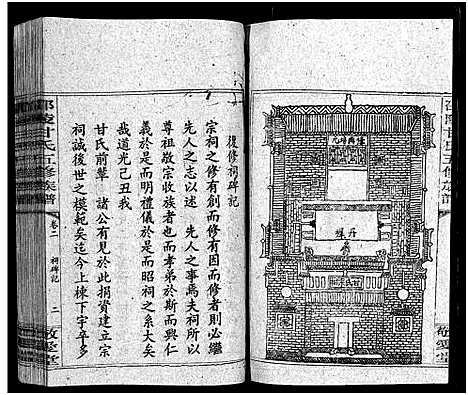 邵陵甘氏五修族譜
敬愛堂
丹墀
復修祠碑記
宗祠之修有創而修有因而修者則必繼
先人之志以述先人之事焉夫祠所以
尊祖敬宗收族者也而孝弟於斯而興仁
義於是而明禮儀於是而昭祠之系大矣
哉道光己丑我
甘氏前輩諸公有見於此捐資建立宗
祠誠後世之模範矣迄今上棟下宇卒多
邵陵甘氏五修族譜
卷二
祠碑記
二
敬愛堂